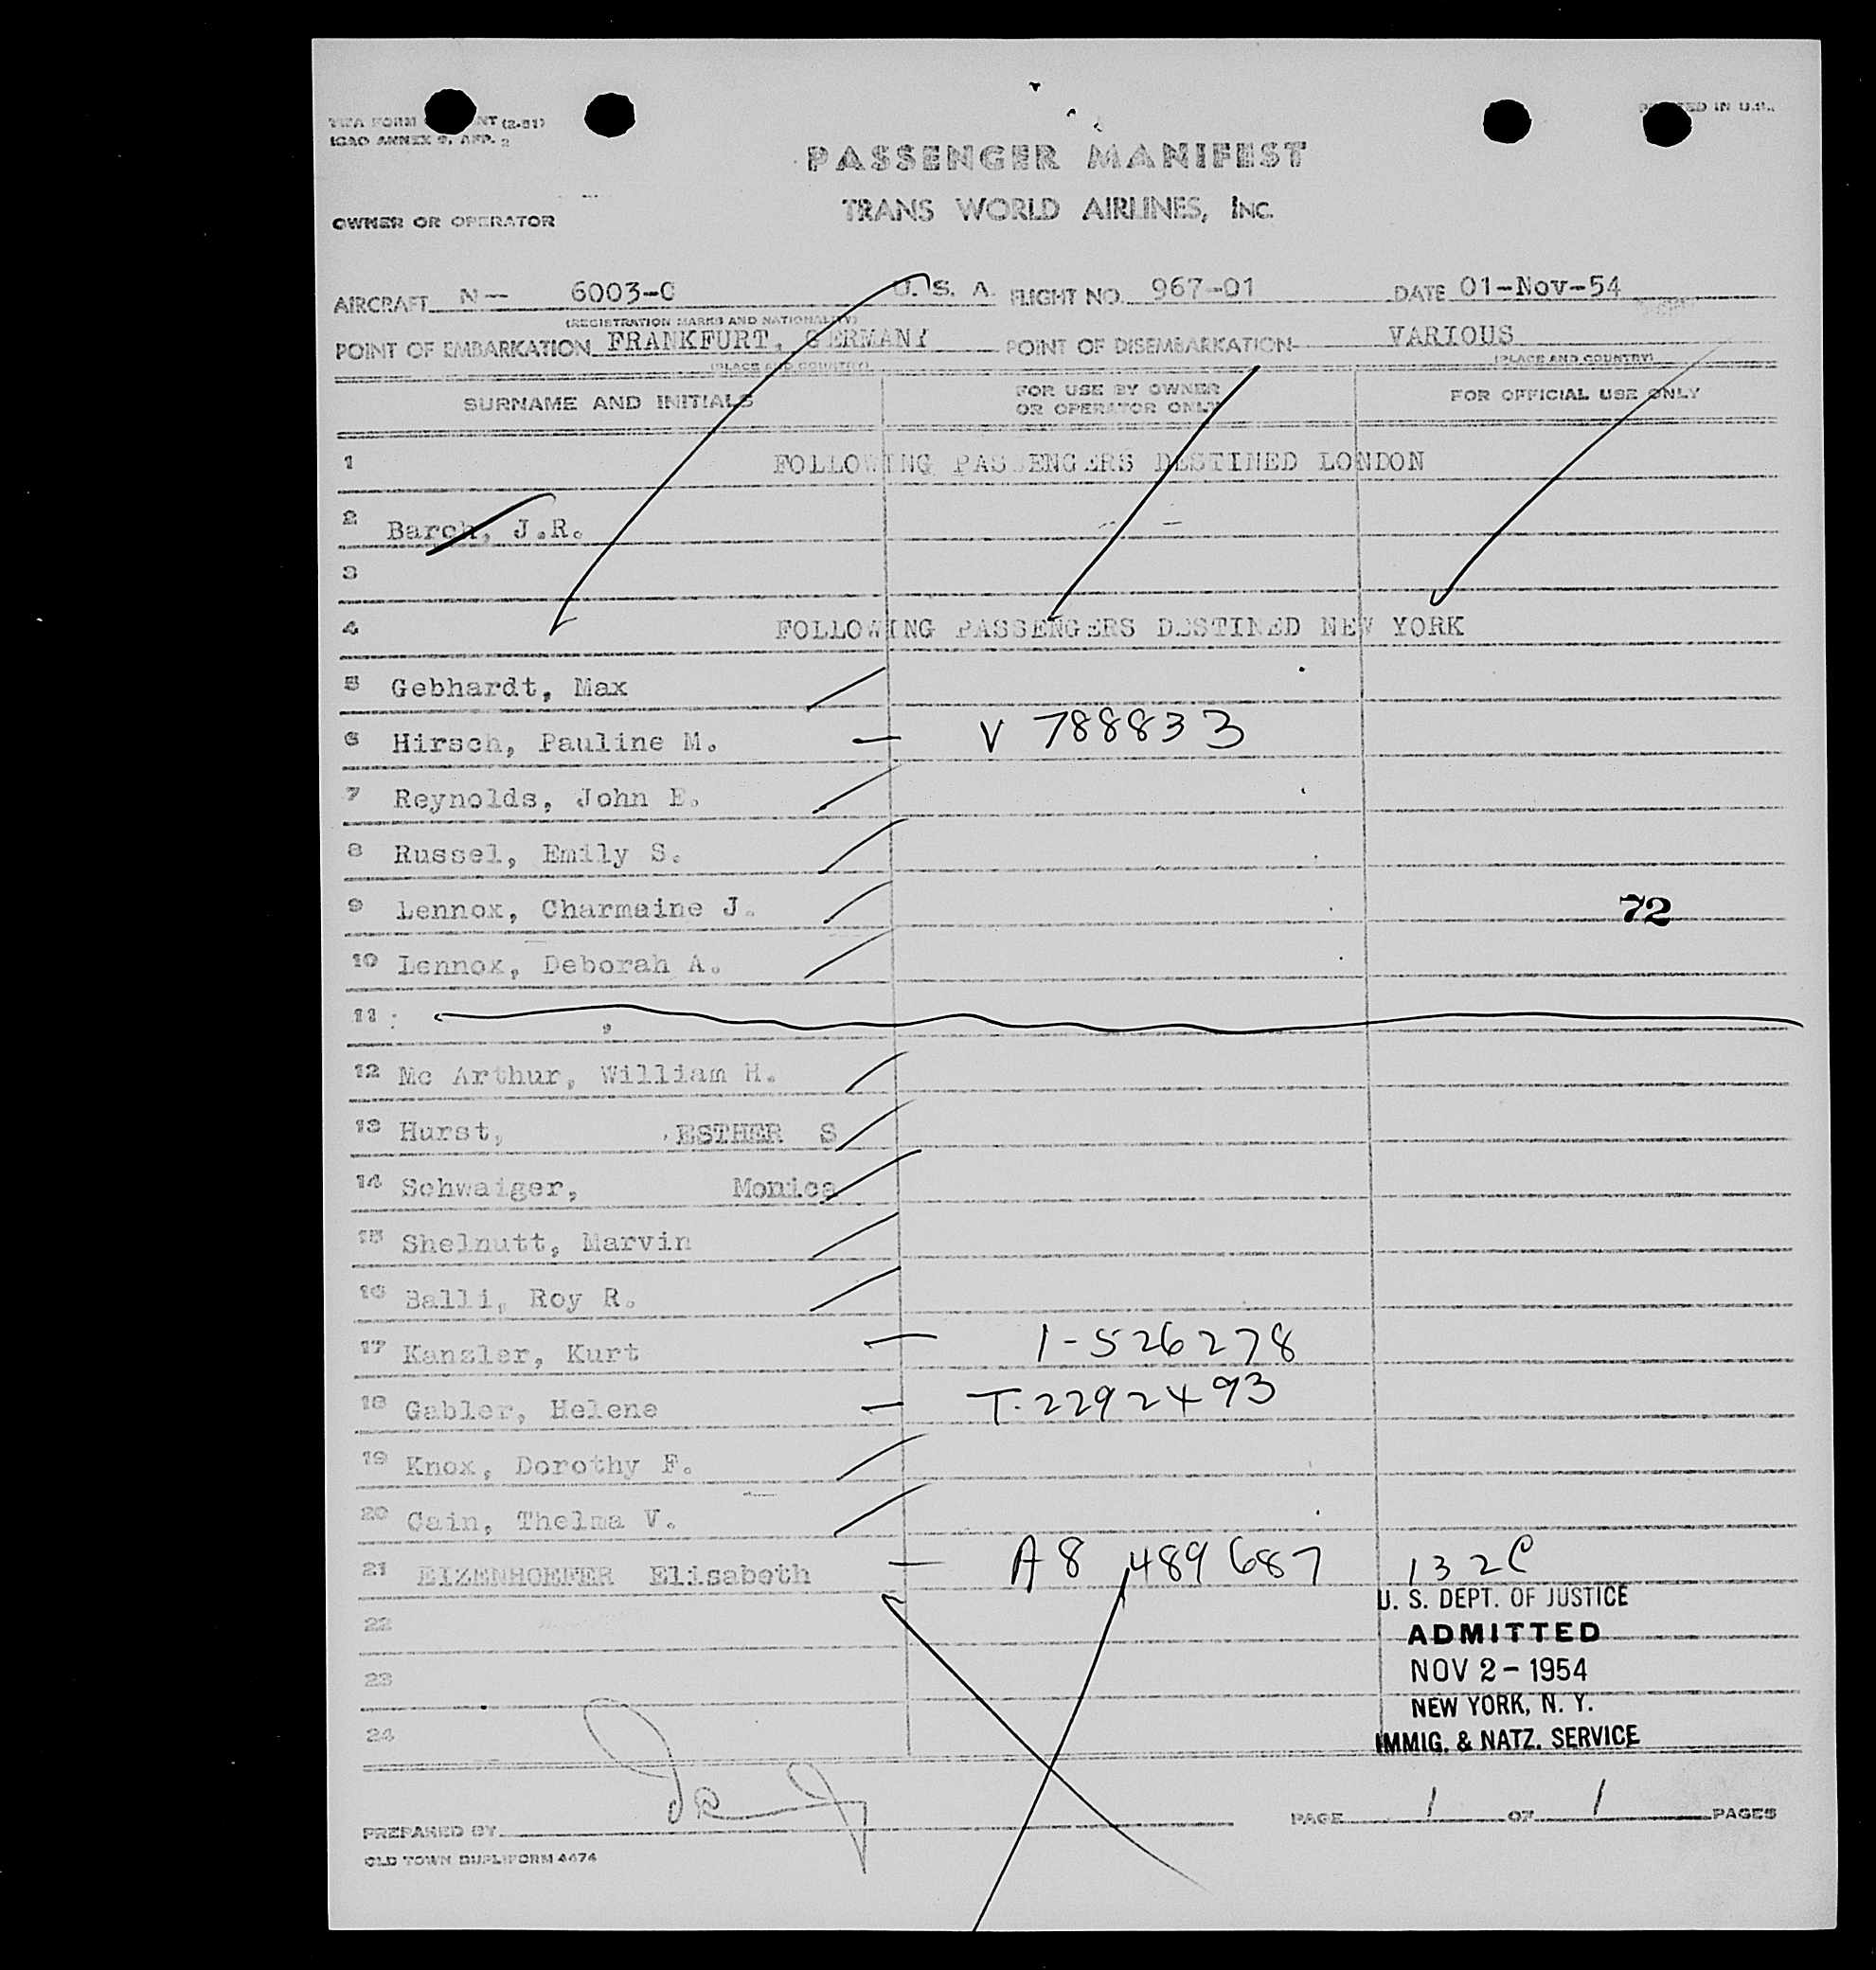 TWA FORM NT (2-51)
ICAO ANNEX 9, APP. 2
PRINTED IN U.S.
PASSENGER MANIFEST
TRANS WORLD AIRLINES, INC.
OWNER OR OPERATOR
AIRCRAFT N- 6003-C U. S. A. FLIGHT NO. 967-01 DATE 01-Nov-54
(REGISTRATION MARKS AND NATIONALITY)
POINT OF EMBARKATION FRANKFURT, GERMANY POINT OF DISEMBARKATION VARIOUS
(PLACE AND COUNTRY) (PLACE AND COUNTRY)
SURNAME AND INITIALS FOR USE BY OWNER OR OPERATOR ONLY FOR OFFICIAL USE ONLY
1 FOLLOWING PASSENGERS DESTINED LONDON
2 Barch, J.R.
3
4 FOLLOWING PASSENGERS DESTINED NEW YORK
5 Gebhardt, Max
6 Hirsch, Pauline M. — V 788833
7 Reynolds, John E.
8 Russel, Emily S.
9 Lennox, Charmaine J. 72
10 Lennox, Deborah A.
11
12 Mc Arthur, William H.
13 Hurst, ESTHER S
14 Schwaiger, Monica
15 Shelnutt, Marvin
16 Balli, Roy R.
17 Kanzler, Kurt — 1-526278
18 Gabler, Helene — T-2292493
19 Knox, Dorothy F.
20 Cain, Thelma V.
21 EIZENHOEFER Elisabeth — A8 489 687 132C
22
23
24
U. S. DEPT. OF JUSTICE
ADMITTED
NOV 2 - 1954
NEW YORK, N. Y.
IMMIG. & NATZ. SERVICE
PREPARED BY PAGE 1 OF 1 PAGES
OLD TOWN DUPLIFORM 4474